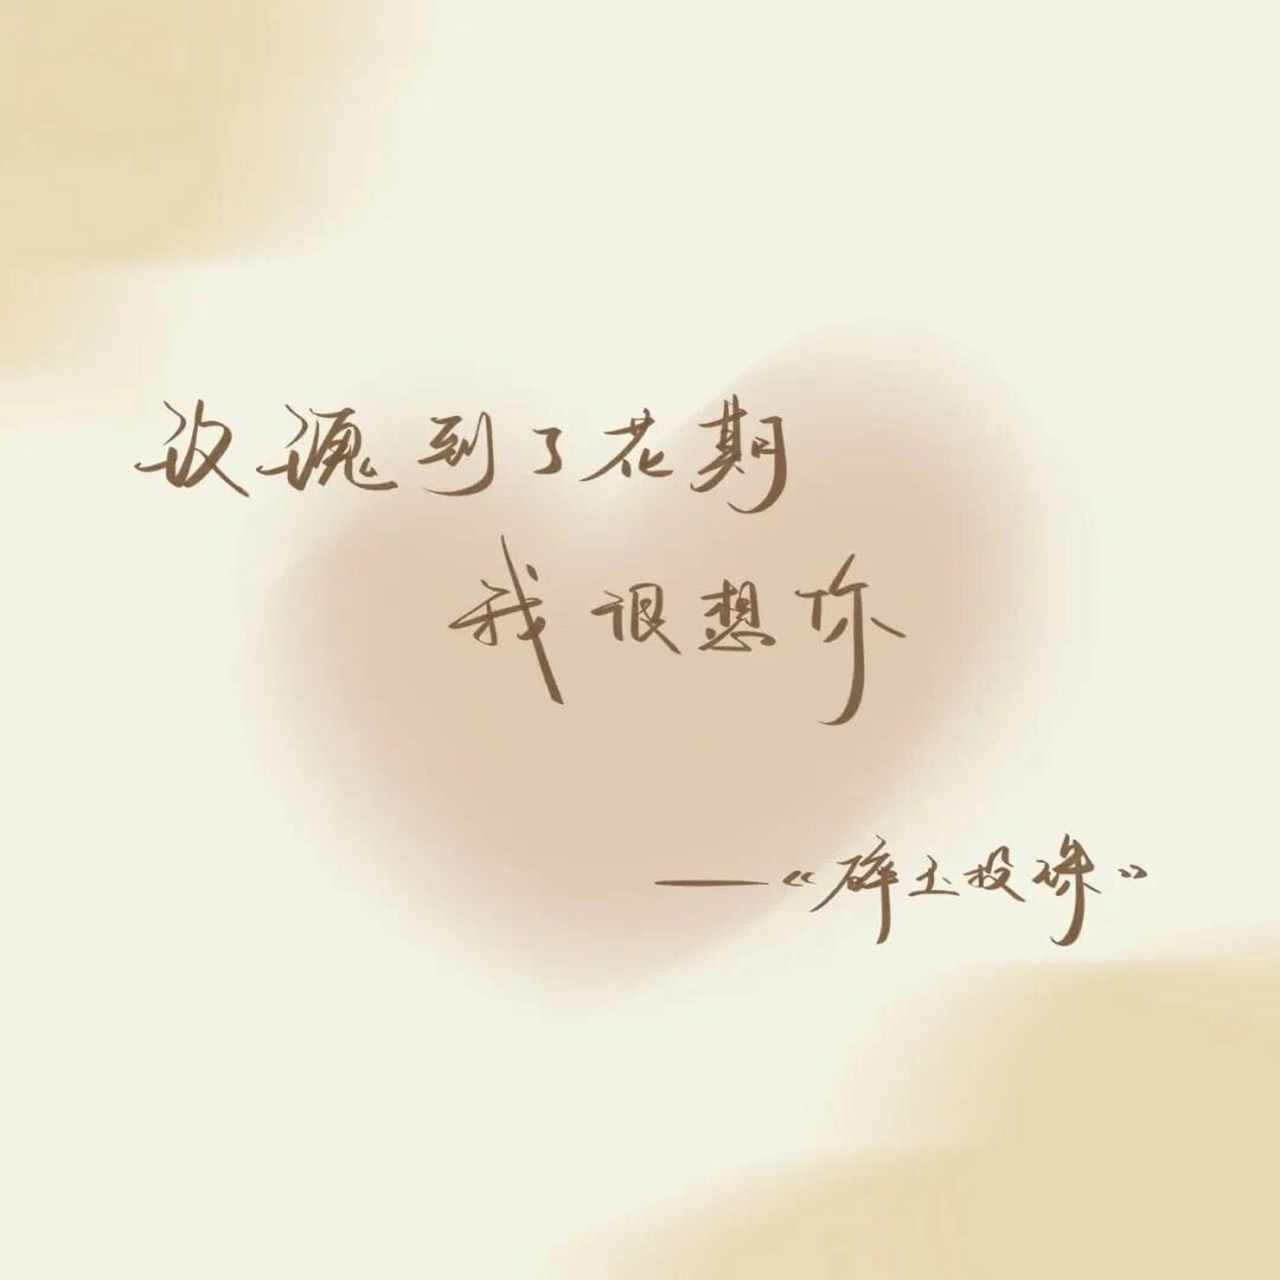 玫瑰到了花期
我很想你
——《碎玉投珠》